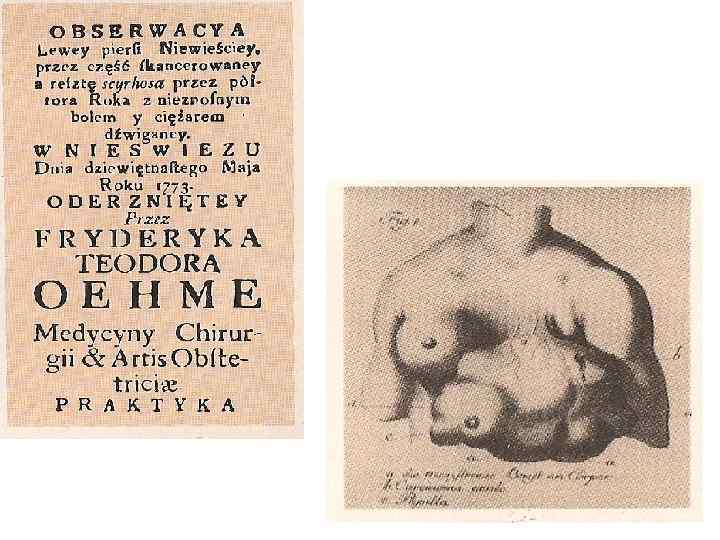 OBSERWACYA
Lewey pierſi Niewieściey,
przez część ſkancerowaney
a reſztę scyrhosa przez póſ-
tora Roka z nieznoſnym
bolem y ciężarem
dźwiganey.
W NIESWIEZU
Dnia dziewiętnaſtego Maja
Roku 1773.
ODERZNIĘTEY
Przez
FRYDERYKA
TEODORA
OEHME
Medycyny Chirur-
gii & Artis Obſte-
triciæ
PRAKTYKA
a die
b
c Papilla